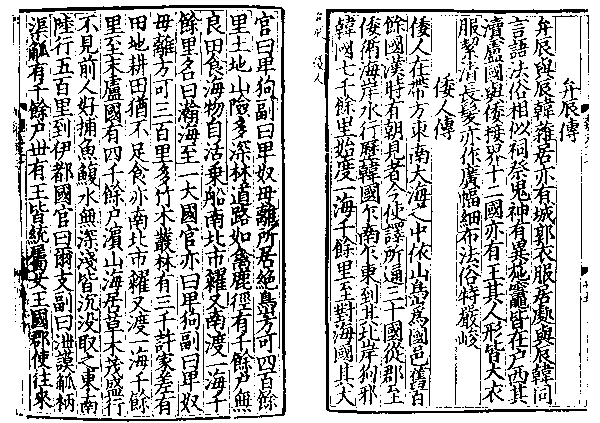 弁辰傳
弁辰與辰韓雜居亦有城郭衣服居處與辰韓同
言語法俗相似祠祭鬼神有異施竈皆在戶西其
瀆盧國與倭接界十二國亦有王其人形皆大衣
服絜清長髮亦作廣幅細布法俗特嚴峻
倭人傳
倭人在帶方東南大海之中依山島爲國邑舊百
餘國漢時有朝見者今使譯所通三十國從郡至
倭循海岸水行歷韓國乍南乍東到其北岸狗邪
韓國七千餘里始度一海千餘里至對海國其大
官曰卑狗副曰卑奴母離所居絶島方可四百餘
里土地山險多深林道路如禽鹿徑有千餘戶無
良田食海物自活乗船南北市糴又南渡一海千
餘里名曰瀚海至一大國官亦曰卑狗副曰卑奴
母離方可三百里多竹木叢林有三千許家差有
田地耕田猶不足食亦南北市糴又渡一海千餘
里至末盧國有四千餘戶濱山海居草木茂盛行
不見前人好捕魚鰒水無深淺皆沉没取之東南
陸行五百里到伊都國官曰爾支副曰泄謨觚柄
渠觚有千餘戶世有王皆統屬女王國郡使往來